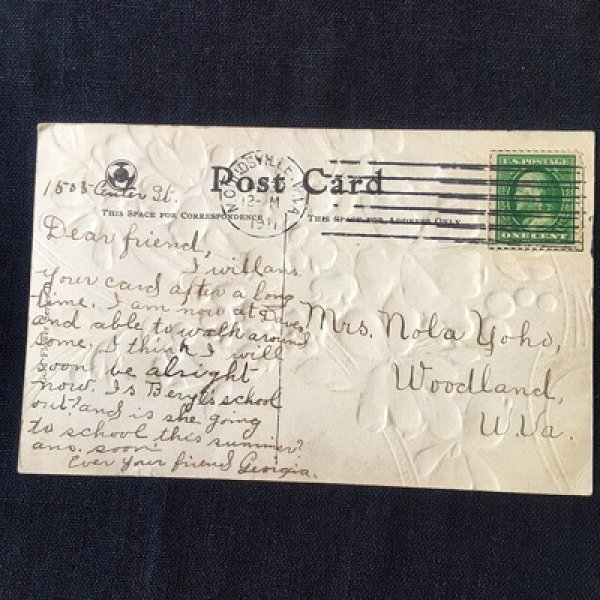 1505 Center St.
Post Card
MOUNDSVILLE, W.VA
12-M
1911
U.S. POSTAGE
ONE CENT
THIS SPACE FOR CORRESPONDENCE
THIS SPACE FOR ADDRESS ONLY
Dear friend,
I will ans.
your card after a long
time. I am now at
and able to walk around
some. I think I will
soon be alright
now. Is Beryls school
out? and is she going
to school this summer?
ans. soon
Ever your friend Georgia.
Mrs. Nola Yoho,
Woodland,
W.Va.